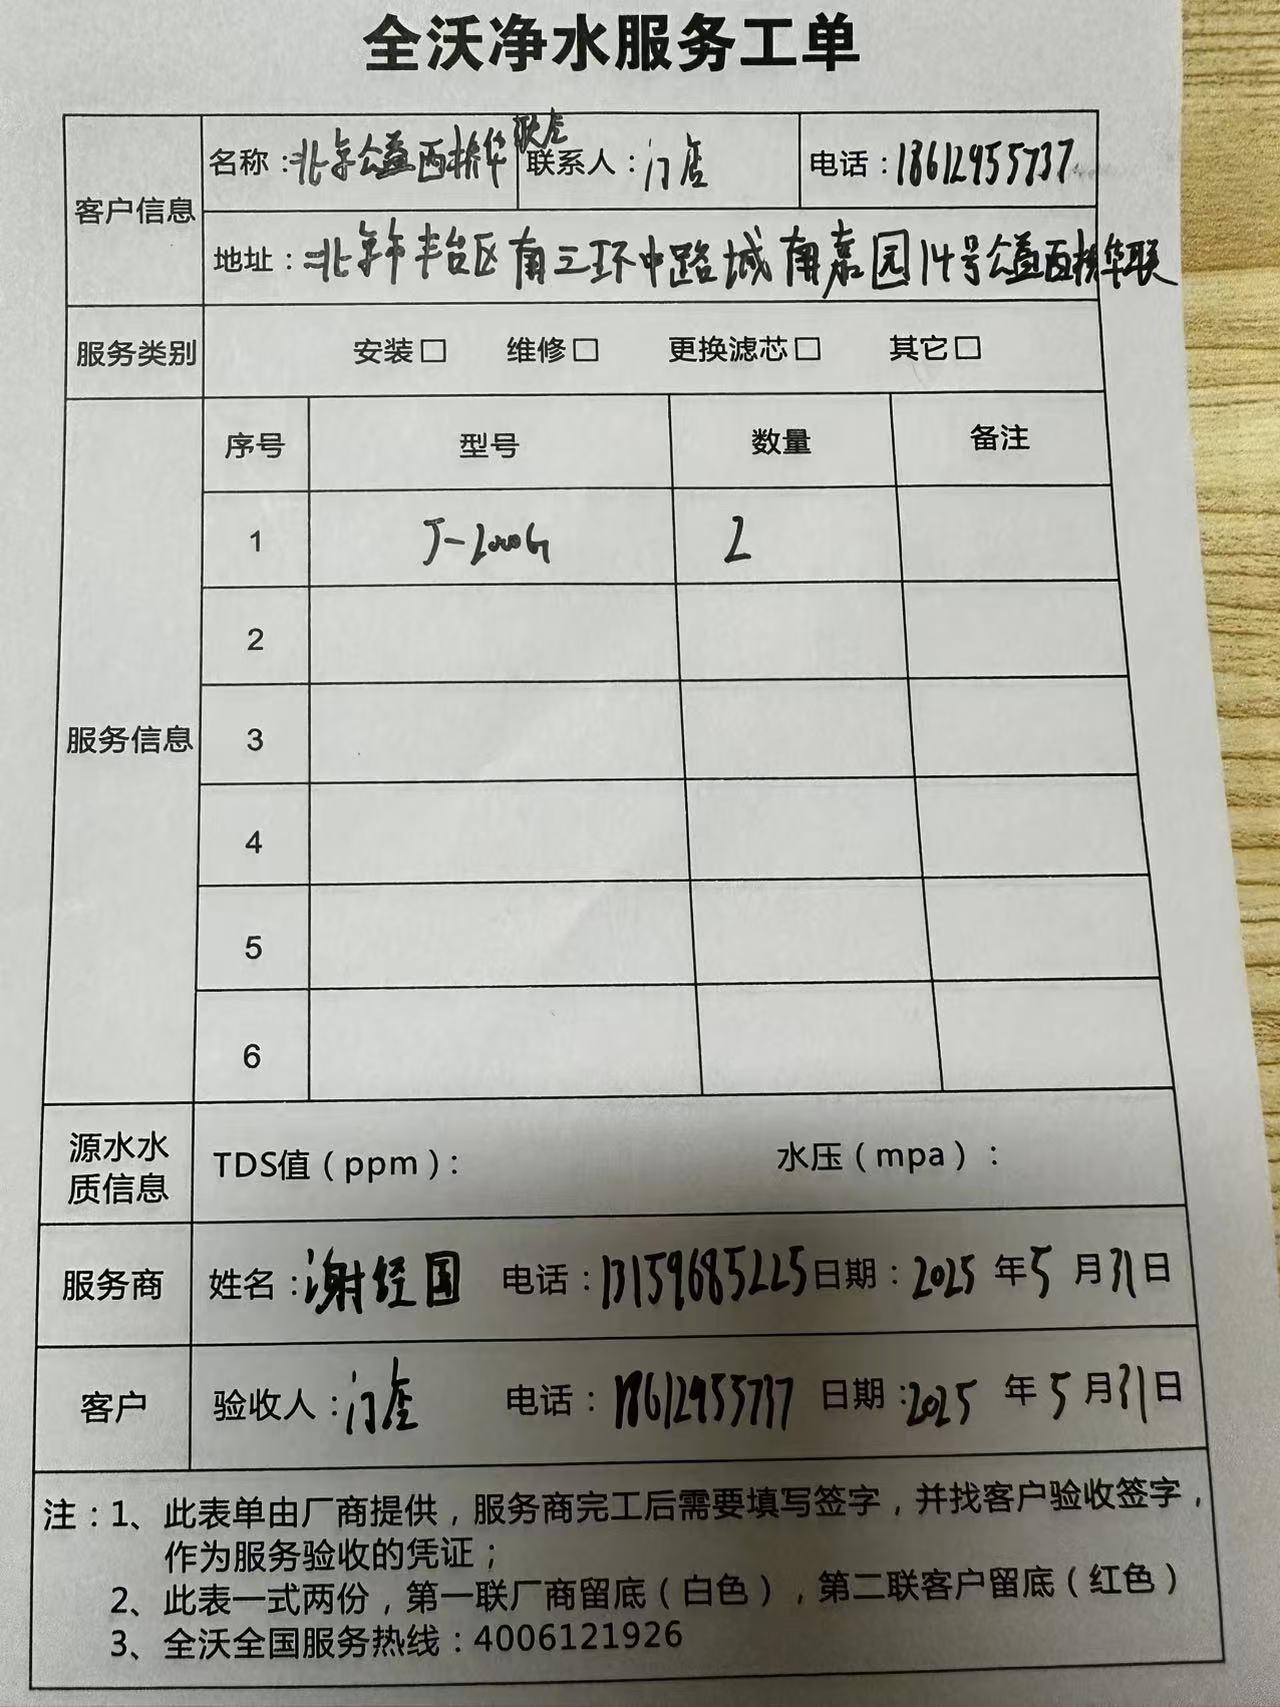 全沃净水服务工单
客户信息
名称：北京公益西桥华联店
联系人：门店
电话：18612955737
地址：北京市丰台区南三环中路城南嘉园14号公益西桥华联
服务类别
安装□ 维修□ 更换滤芯□ 其它□
服务信息
序号 型号 数量 备注
1 J-2000G 2
2
3
4
5
6
源水水质信息
TDS值（ppm）： 水压（mpa）：
服务商
姓名：谢经国 电话：13159685225 日期：2025 年 5 月 31 日
客户
验收人：门店 电话：18612955737 日期：2025 年 5 月 31 日
注：1、此表单由厂商提供，服务商完工后需要填写签字，并找客户验收签字，
作为服务验收的凭证；
2、此表一式两份，第一联厂商留底（白色），第二联客户留底（红色）
3、全沃全国服务热线：4006121926